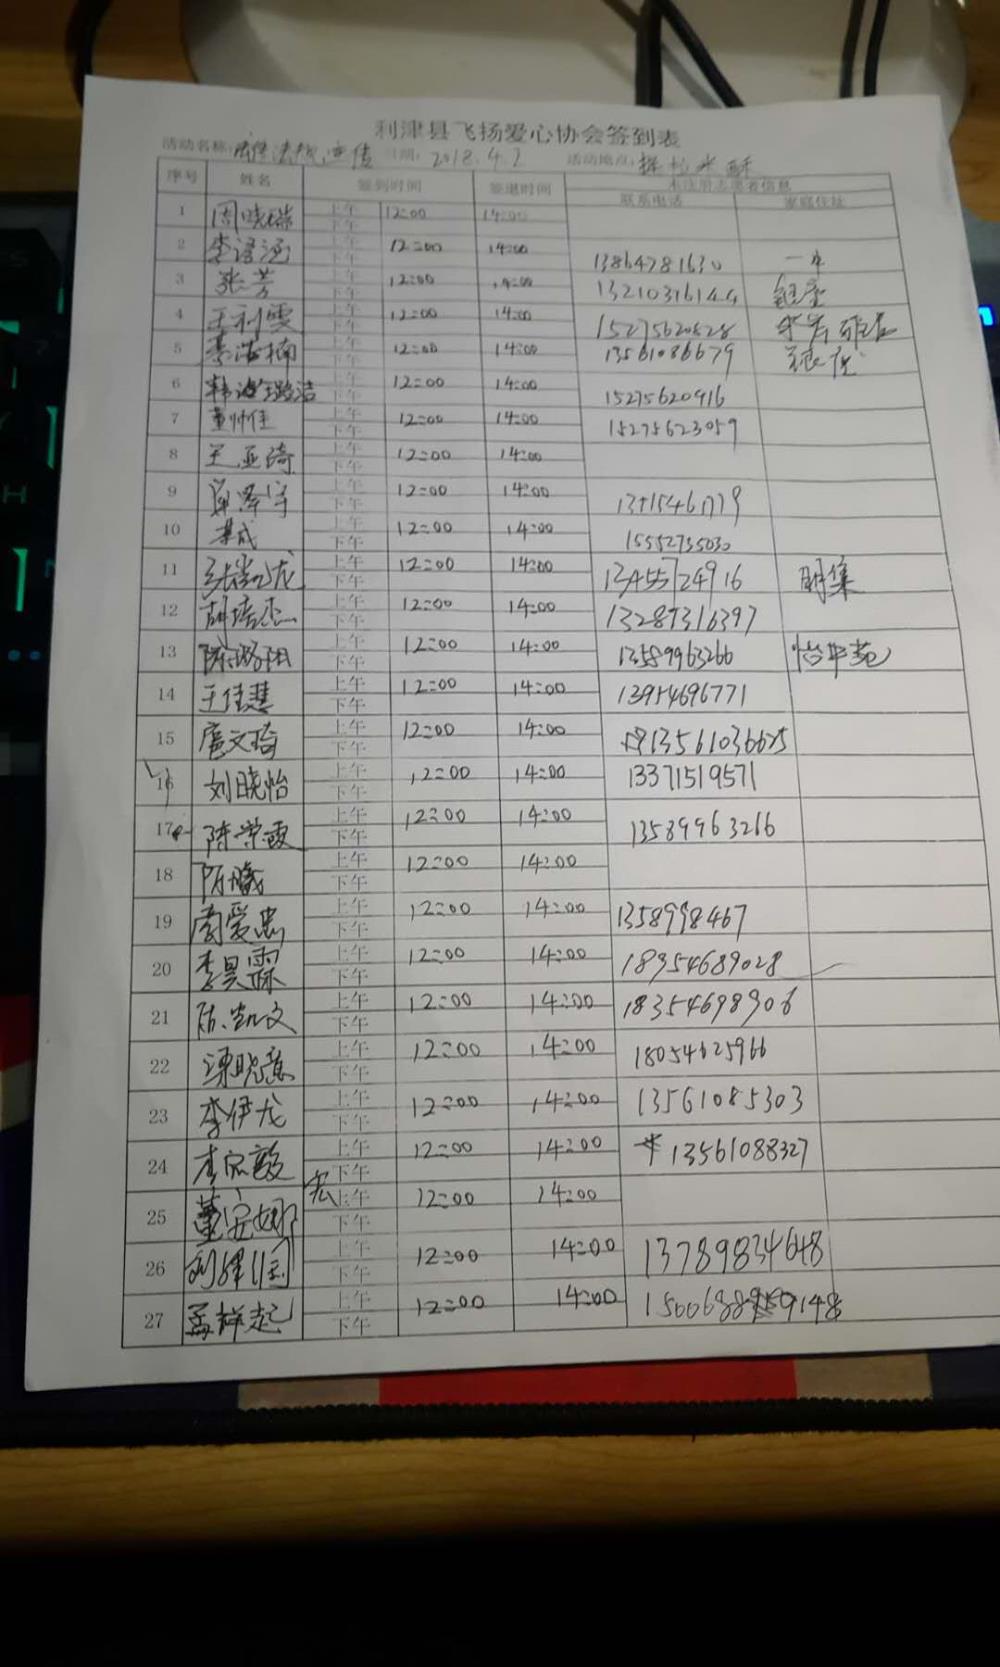 利津县飞扬爱心协会签到表
活动名称: 宣传 日期: 2018.4.2 活动地点:
序号 姓名 签到时间 签退时间 未注册志愿者信息
联系电话 家庭住址
1 周晓瑞 上午 下午 12:00 14:00
2 李语涵 上午 下午 12:00 14:00 13864781630 一中
3 张芳 上午 下午 12:00 14:00
4 王利雯 上午 下午 12:00 14:00 15275620828
5 綦浩楠 上午 下午 12:00 14:00 13561086679
6 上午 下午 12:00 14:00 15275620916
7 董帅佳 上午 下午 12:00 14:00 15275623059
8 王亚琦 上午 下午 12:00 14:00
9 上午 下午 12:00 14:00
10 上午 下午 12:00 14:00 15552735030
11 上午 下午 12:00 14:00 13455724916 明集
12 胡培杰 上午 下午 12:00 14:00 13287316397
13 陈洛阳 上午 下午 12:00 14:00 13589963266 怡华苑
14 王佳慧 上午 下午 12:00 14:00 13954696771
15 扈文琦 上午 下午 12:00 14:00 13561036675
16 刘晓怡 上午 下午 12:00 14:00 13371519571
17 陈荣霞 上午 下午 12:00 14:00 13589963266
18 陈曦 上午 下午 12:00 14:00
19 上午 下午 12:00 14:00 1358998467
20 李昊霖 上午 下午 12:00 14:00 18954689028
21 陈凯文 上午 下午 12:00 14:00 18354698906
22 谭晓慧 上午 下午 12:00 14:00 18054625966
23 李伊龙 上午 下午 12:00 14:00 13561085303
24 李宗毅 上午 下午 12:00 14:00 13561088327
25 董安娜 宏 上午 下午 12:00 14:00
26 上午 下午 12:00 14:00 13789834648
27 孟祥起 上午 下午 12:00 14:00